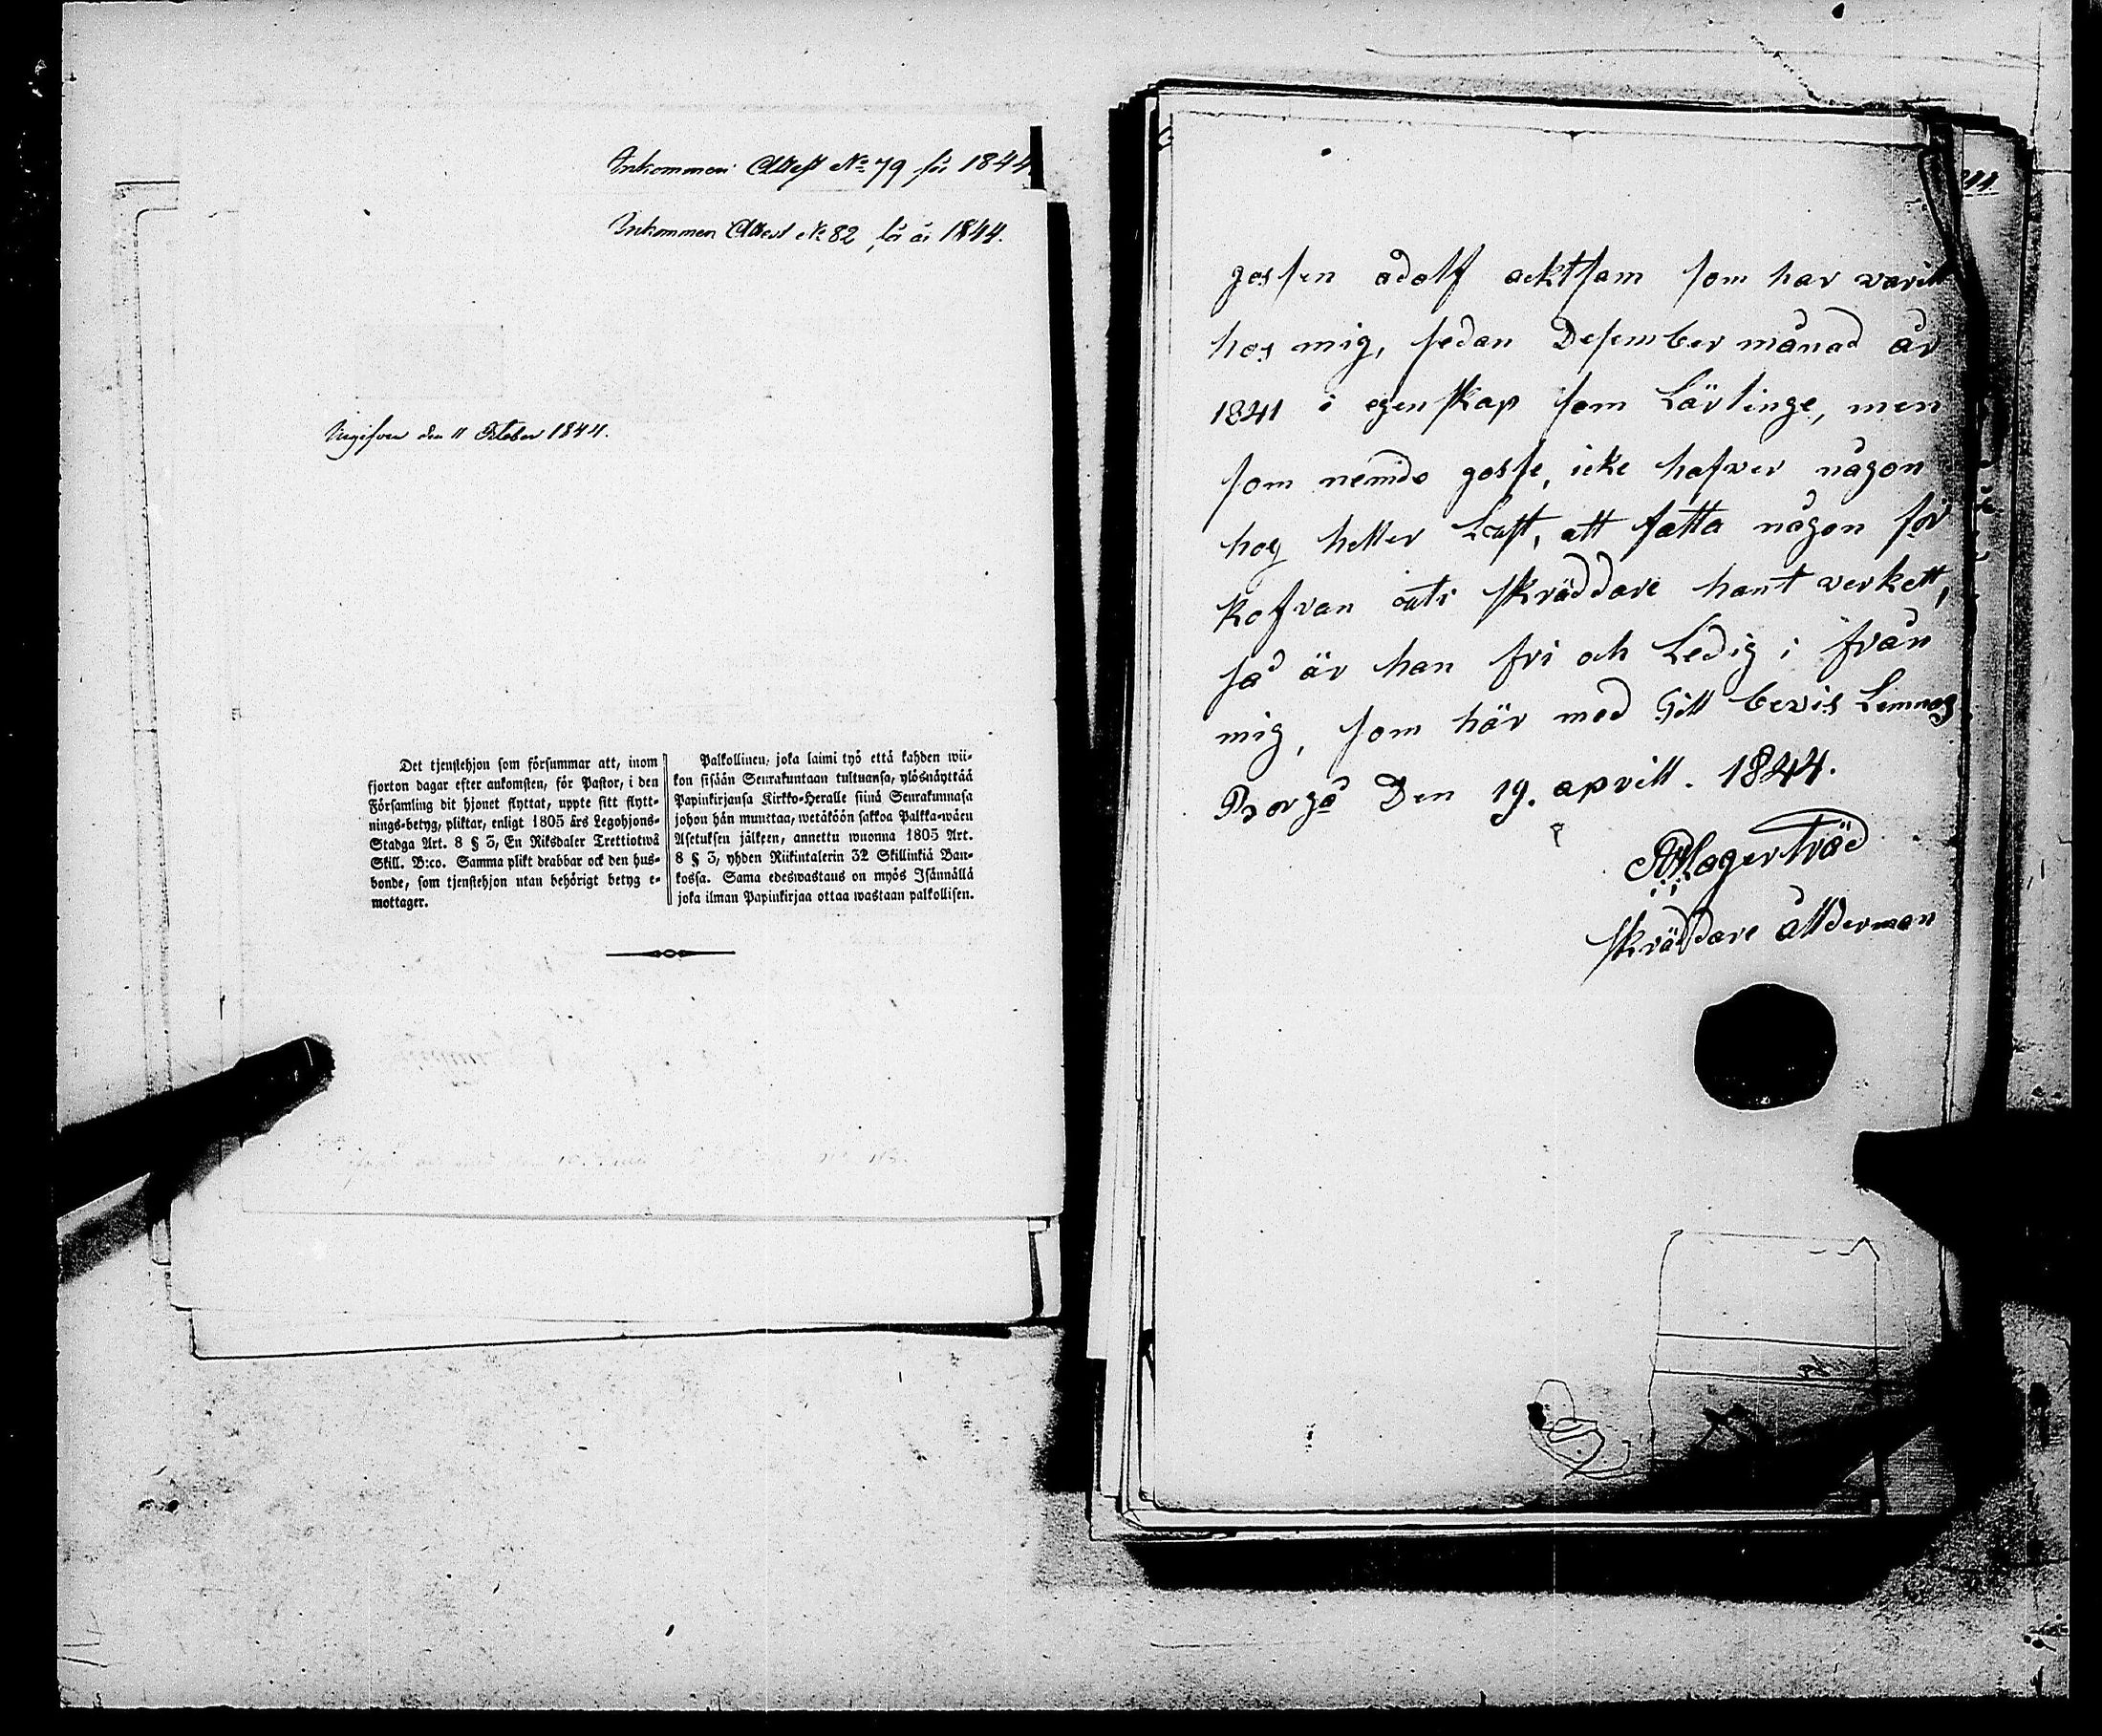 Inkommen Attest No 79 för 1844
Inkommen Attest No 82 för år 1844.
Uppvisen den 11 October 1844.
Det tjenstehjon som försummar att, inom
fjorton dagar efter ankomsten, för Pastor, i den
Församling dit hjonet flyttat, uppte sitt flytt-
nings-betyg, pliktar, enligt 1805 års Legohjons-
Stadga Art. 8 § 3, En Riksdaler Trettiotwå
Skill. B:co. Samma plikt drabbar ock den hus-
bonde, som tjenstehjon utan behörigt betyg e-
mottager.
Palkollinen, joka laimi lyö että kahden wii-
kon sisään Seurakuntaan tultuansa, ylösnäyttää
Papinkirjansa Kirkko-Heralle siinä Seurakunnasa
johon hän muuttaa, wetäköön sakkoa Palkka-wäen
Asetuksen jälkeen, annettu wuonna 1805 Art.
8 § 3, yhden Riikintalerin 32 Skillinkiä Ban-
kossa. Sama edeswastaus on myös Isännällä
joka ilman Papinkirjaa ottaa wastaan palkollisen.
gossen adolf acktsam som har varit
hos mig, sedan Desember månad år
1841 i egenskap som Lärlinge, men
som nemde gosse, icke hafver någon
hog heller Lust, att fatta någon för
kofran uti skräddare hant verkett,
så är han fri och Ledig i från
mig, som här med till bevis Lemnas
Borgå Den 19. aprill. 1844.
Lagerträd
skräddare ållderman